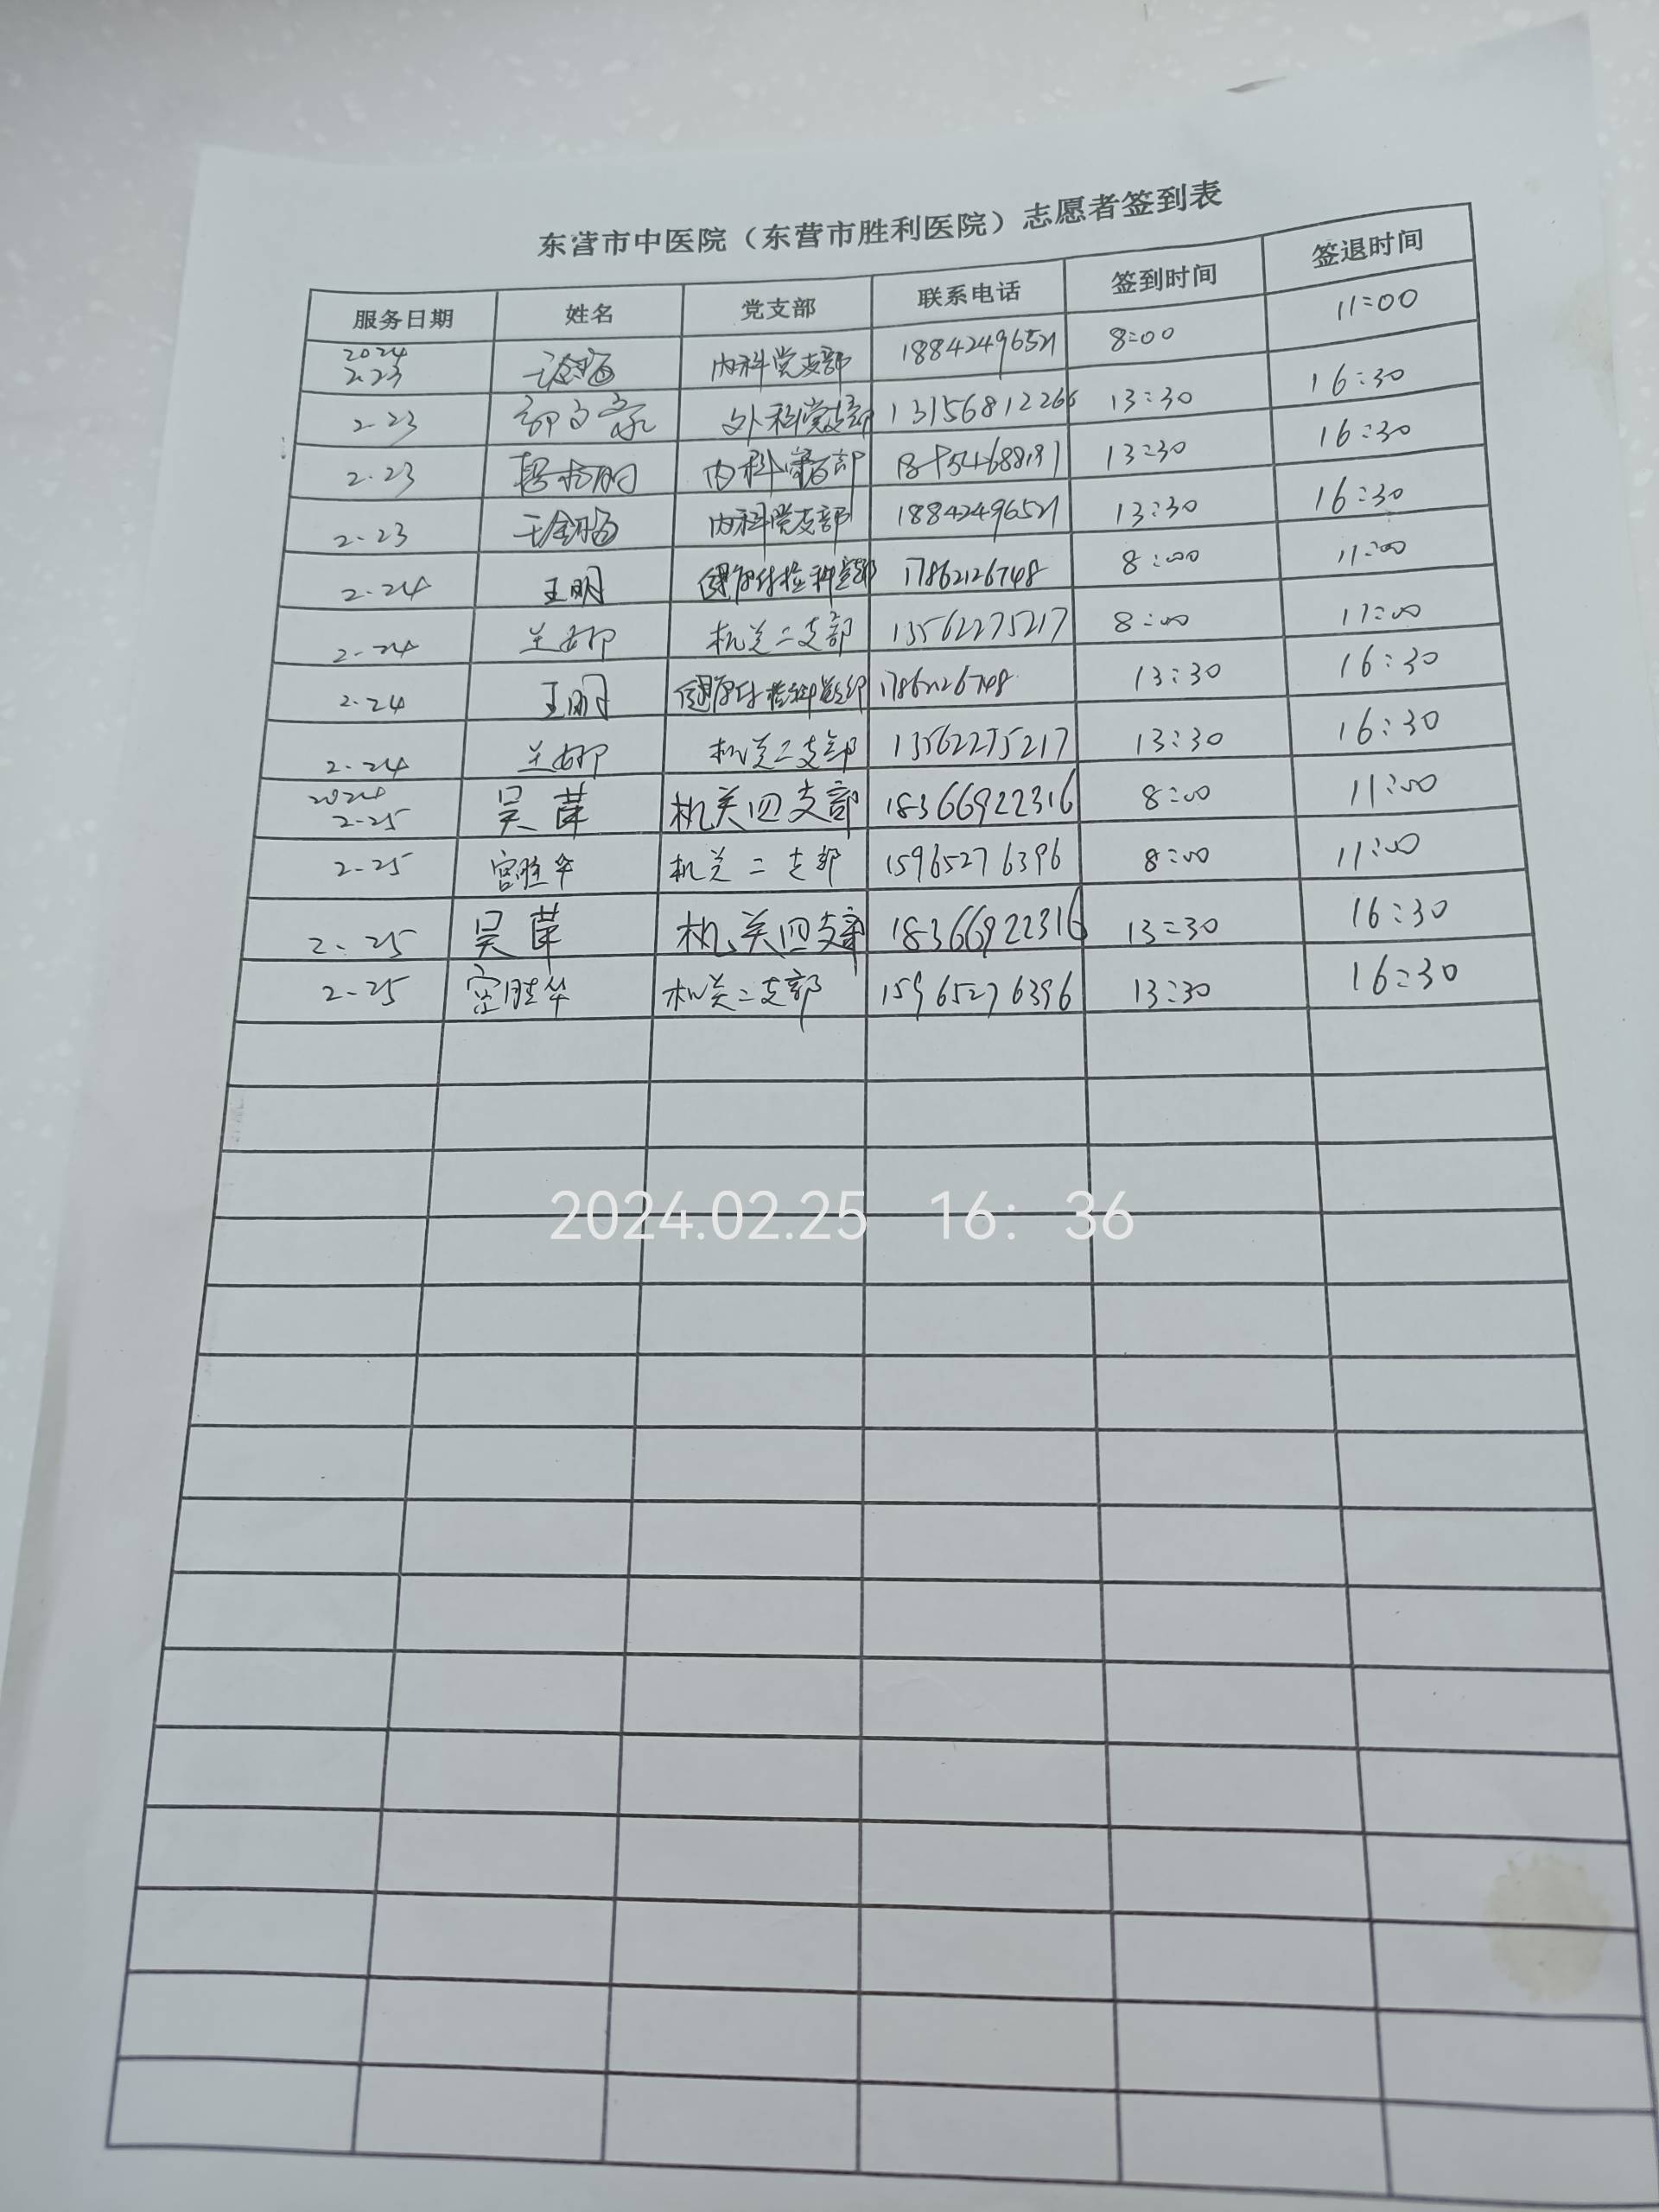 东营市中医院（东营市胜利医院）志愿者签到表
服务日期 姓名 党支部 联系电话 签到时间 签退时间
2024
2.23 内科党支部 18842496521 8:00 11:00
2.23 外科党支部 13156812266 13:30 16:30
2.23 内科 部 13:30 16:30
2.23 内科党支部 18842496521 13:30 16:30
2.24 王明 17862126748 8:00 11:00
2.24 机关二支部 13562275217 8:00 11:00
2.24 王明 17862126748 13:30 16:30
2.24 机关二支部 13562275217 13:30 16:30
2024
2.25 吴 机关四支部 18366922316 8:00 11:00
2.25 宫胜华 机关二支部 15965276396 8:00 11:00
2.25 吴 机关四支部 18366922316 13:30 16:30
2.25 宫胜华 机关二支部 15965276396 13:30 16:30
2024.02.25 16：36